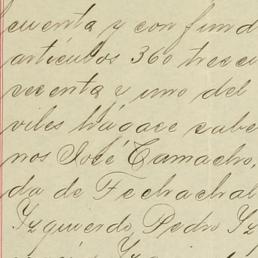 cuenta y con fund
artículos 360 trecci
secenta y uno del
viles hágace sabe
nos José Camacho,
da de Fechachal
Yzquierdo, Pedro Yz